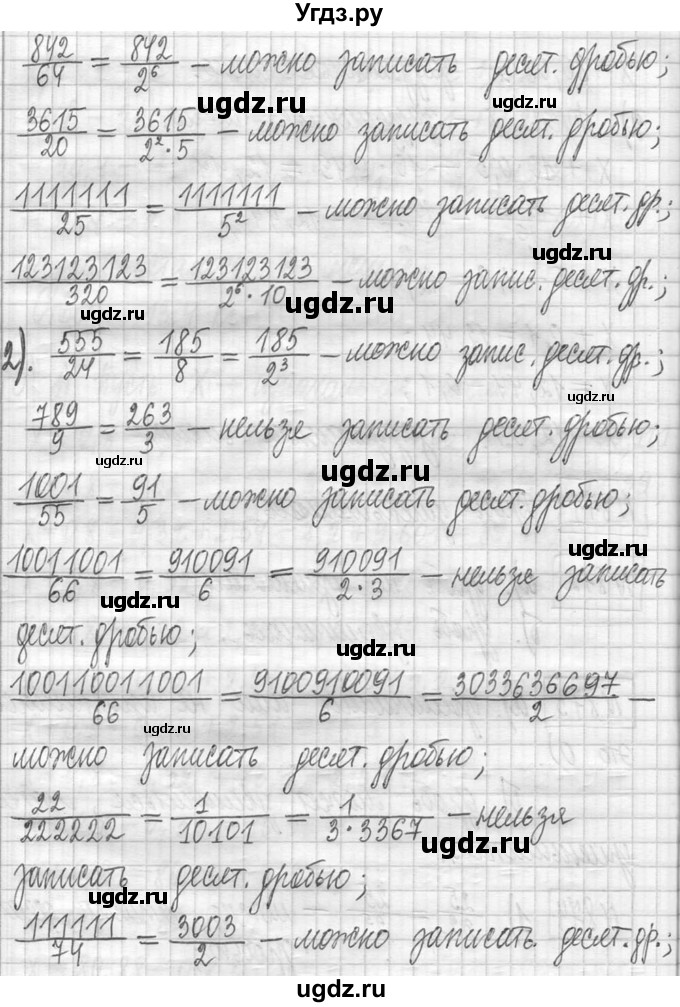 Угдз.ру
842/64 = 842/2⁶ – можно записать десят. дробью;
ugdz.ru
3615/20 = 3615/2²·5 – можно записать десят. дробью;
ugdz.ru
1111111/25 = 1111111/5² – можно записать десят. др.;
ugdz.ru
123123123/320 = 123123123/2⁶·10 – можно запис. десят. др.;
ugdz.ru
2). 555/24 = 185/8 = 185/2³ – можно запис. десят. др.;
ugdz.ru
789/9 = 263/3 – нельзя записать десят. дробью;
ugdz.ru
ugdz.ru
1001/55 = 91/5 – можно записать десят. дробью;
ugdz.ru
10011001/66 = 910091/6 = 910091/2·3 – нельзя записать
ugdz.ru
десят. дробью;
ugdz.ru
100110011001/66 = 9100910091/6 = 3033636697/2 –
ugdz.ru
можно записать десят. дробью;
22/222222 = 1/10101 = 1/3·3367 – нельзя
ugdz.ru
записать десят. дробью;
ugdz.ru
111111/74 = 3003/2 – можно записать десят. др.;
ugdz.ru
ugdz.ru